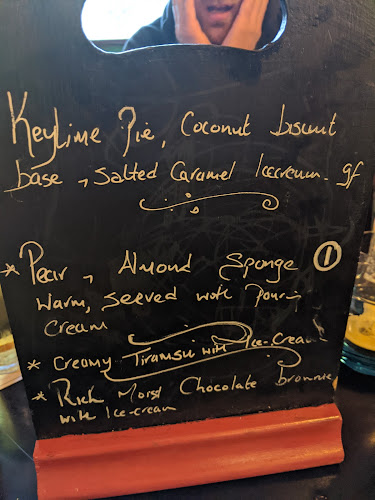 Keylime Pie, Coconut biscuit
base, Salted Caramel Icecream. gf
* Pear, Almond Sponge ①
Warm, Served with Pour,
Cream
* Creamy Tiramsu with Ice-Cream
* Rich Moist Chocolate brownie
with Ice-cream